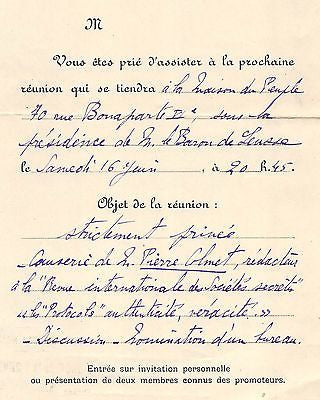 M
Vous êtes prié d'assister à la prochaine
réunion qui se tiendra à la Maison du Peuple
70 rue Bonaparte, sous la
présidence de M. le Baron de
le Samedi 16 Juin, à 20 h.45.
Objet de la réunion :
strictement privée
Causerie de M. Pierre Colmet, rédacteur
à la "Revue internationale des Sociétés secrètes"
"Protocols" authenticité, véracité. »
– Discussion – Nomination d'un bureau.
Entrée sur invitation personnelle
ou présentation de deux membres connus des promoteurs.